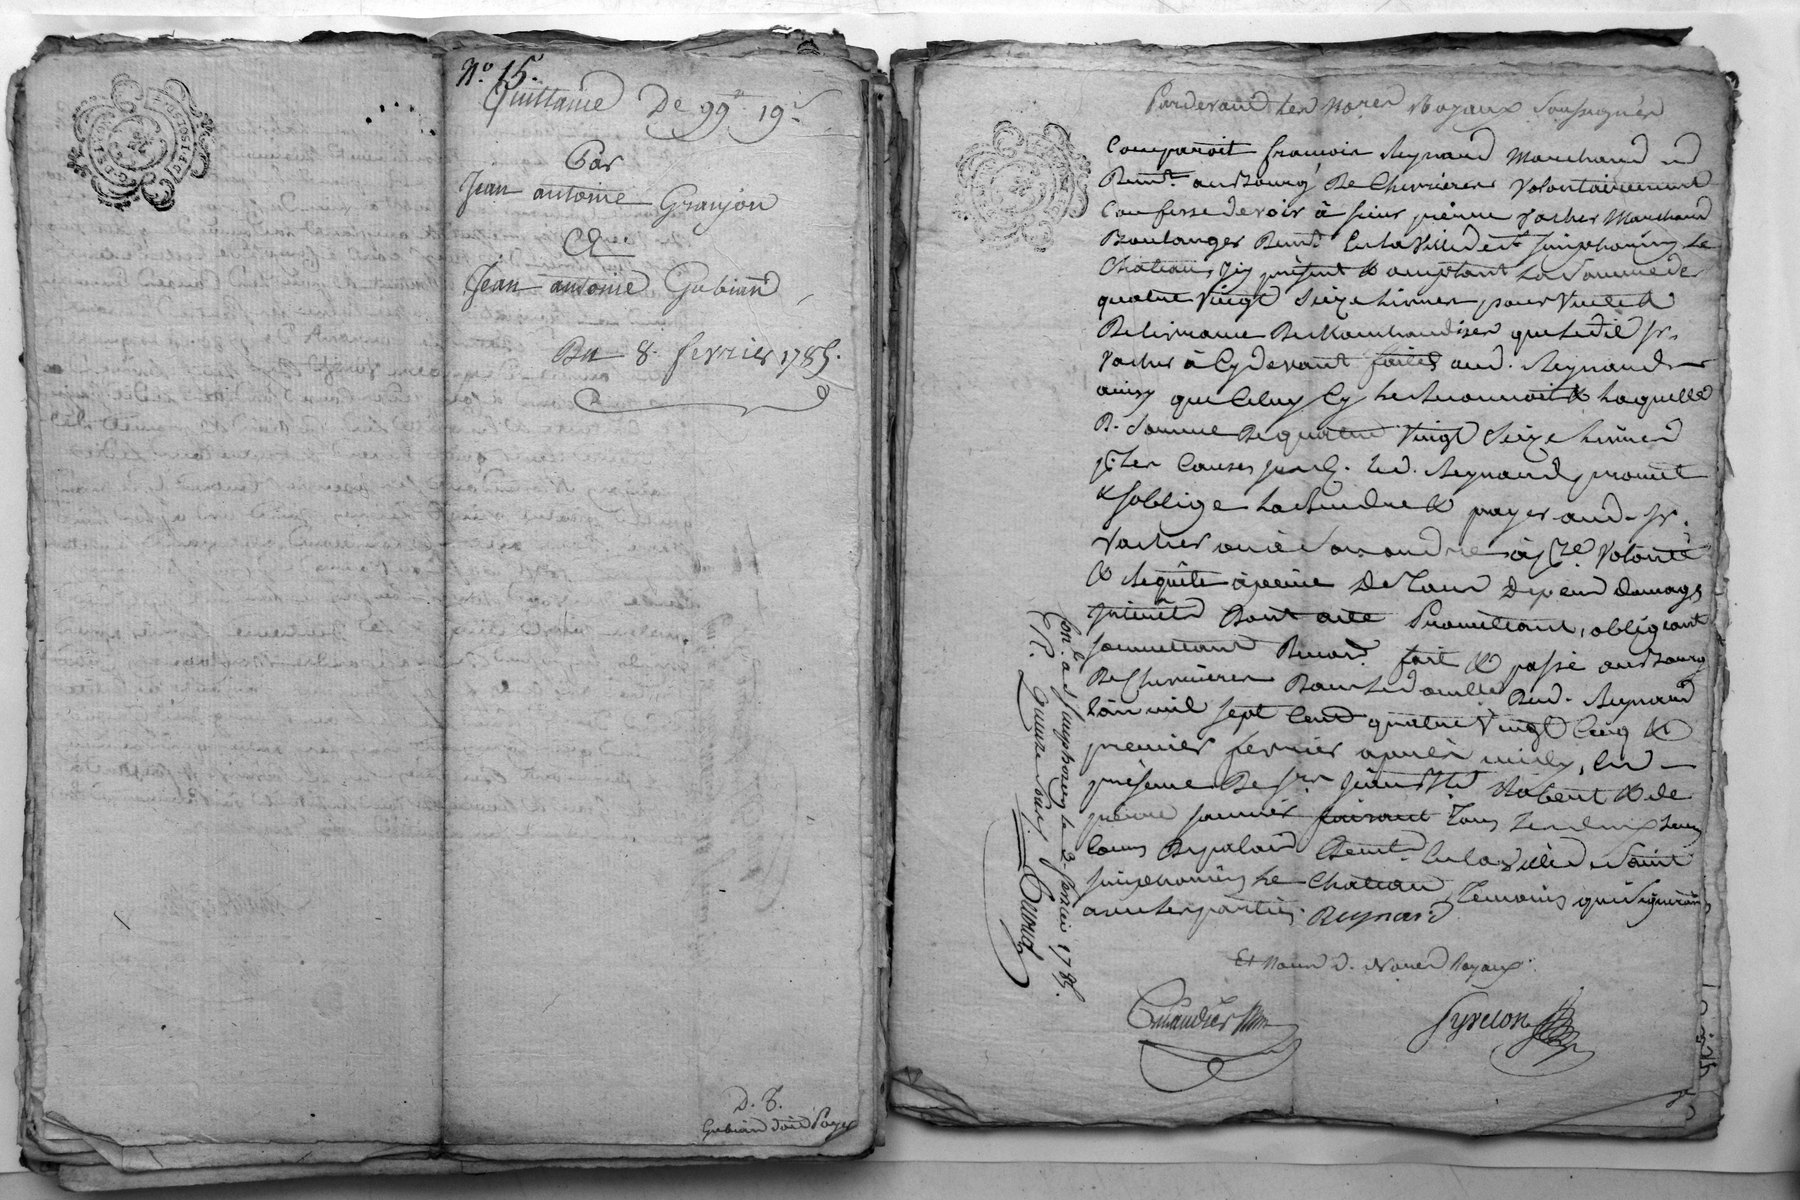 N.º 15.
Quittance De 99ᵗᵗ 19ˢ
Par
Jean antoine Granjon
A
Jean antoine Gubian
Du 8. fevrier 1785.
D. T.
Gubian doit Payer
Pardevant Les No.res Royaux Soussignés
Comparoit francois Reynaud Marchand
Resid.t au Bourg De Chevrieres Volontairement
Confesse devoir à sieur pierre Vacher Marchand
Boulanger Resid.t en la Ville de S.t Simphorien Le
Chateau, Icy présent & acceptant La Somme de
quatre Vingt Seize Livres, pour Vente &
Delivrance De Marchandises que Ledit Sr.
Vacher à Cy devant faites aud. Reynaud
ainsy que Celuy Cy Le Reconnoit & Laquelle
D. Somme De quatre Vingt Seize Livres
Led. Reynaud promet
& Soblige La Rendre & payer aud. Sr.
Vacher ou à Son ordre à Volonté
& Requête à peine De Tous Depens Domages
Interets Dont acte Promettant, obligeant
Soumettant Renon.t fait & passé au Bourg
De Chevrieres Dans Le Domicille Dud. Reynaud
L'an mil Sept Cent quatre Vingt Cinq &
premier fevrier après midy, En
présence De Srs. Jean Robert & de
pierre
Resid.ts En la Ville de Saint
Simphorien Le Chateau Temoins qui Signeront
avec Les parties Reynard
Et Nous D. No.res Royaux
Syveton
Con.lé a S.t Simphorien le 2 fevrier 1785.
R. quinze Sous